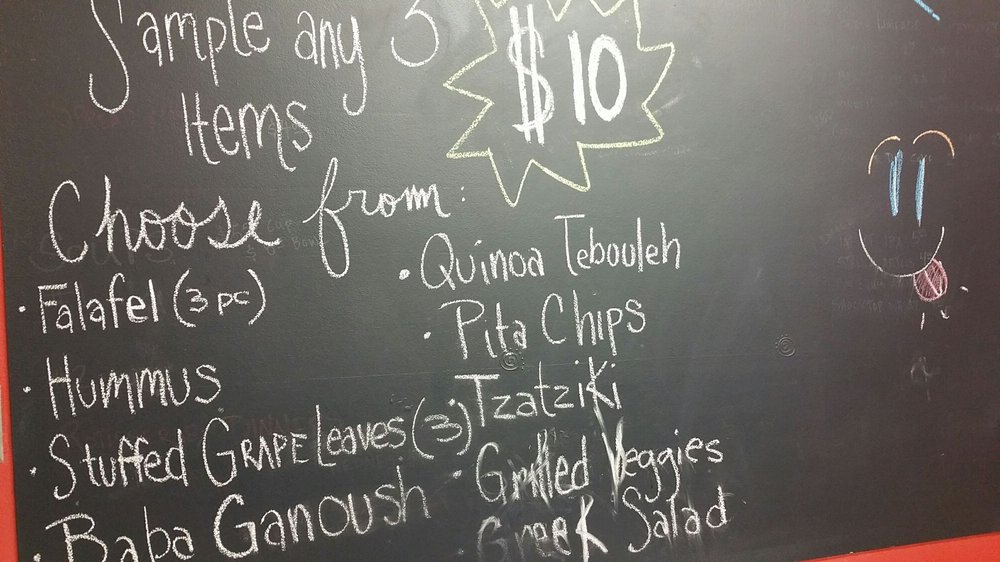 Sample any 3
Items
$10
Choose from:
• Falafel (3 pc)
• Hummus
• Stuffed GRAPE Leaves (3)
• Baba Ganoush
• Quinoa Tebouleh
• Pita Chips
Tzatziki
• Grilled Veggies
Greek Salad